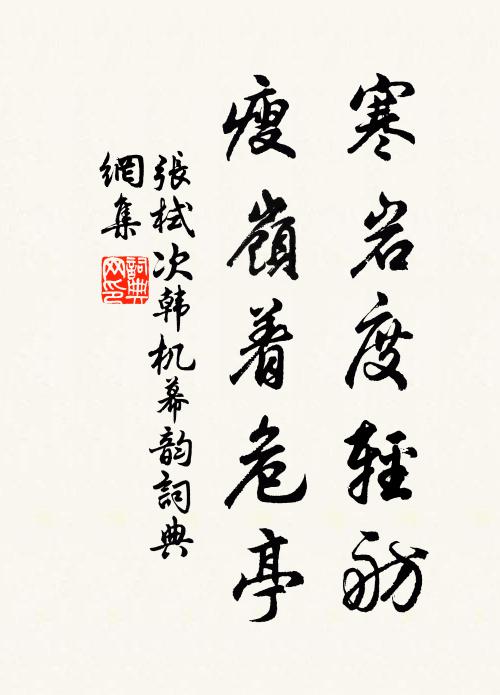 寒岩度輕舫
瘦嶺着危亭
張栻次韩机幕韵詞典
網集
詞典網印